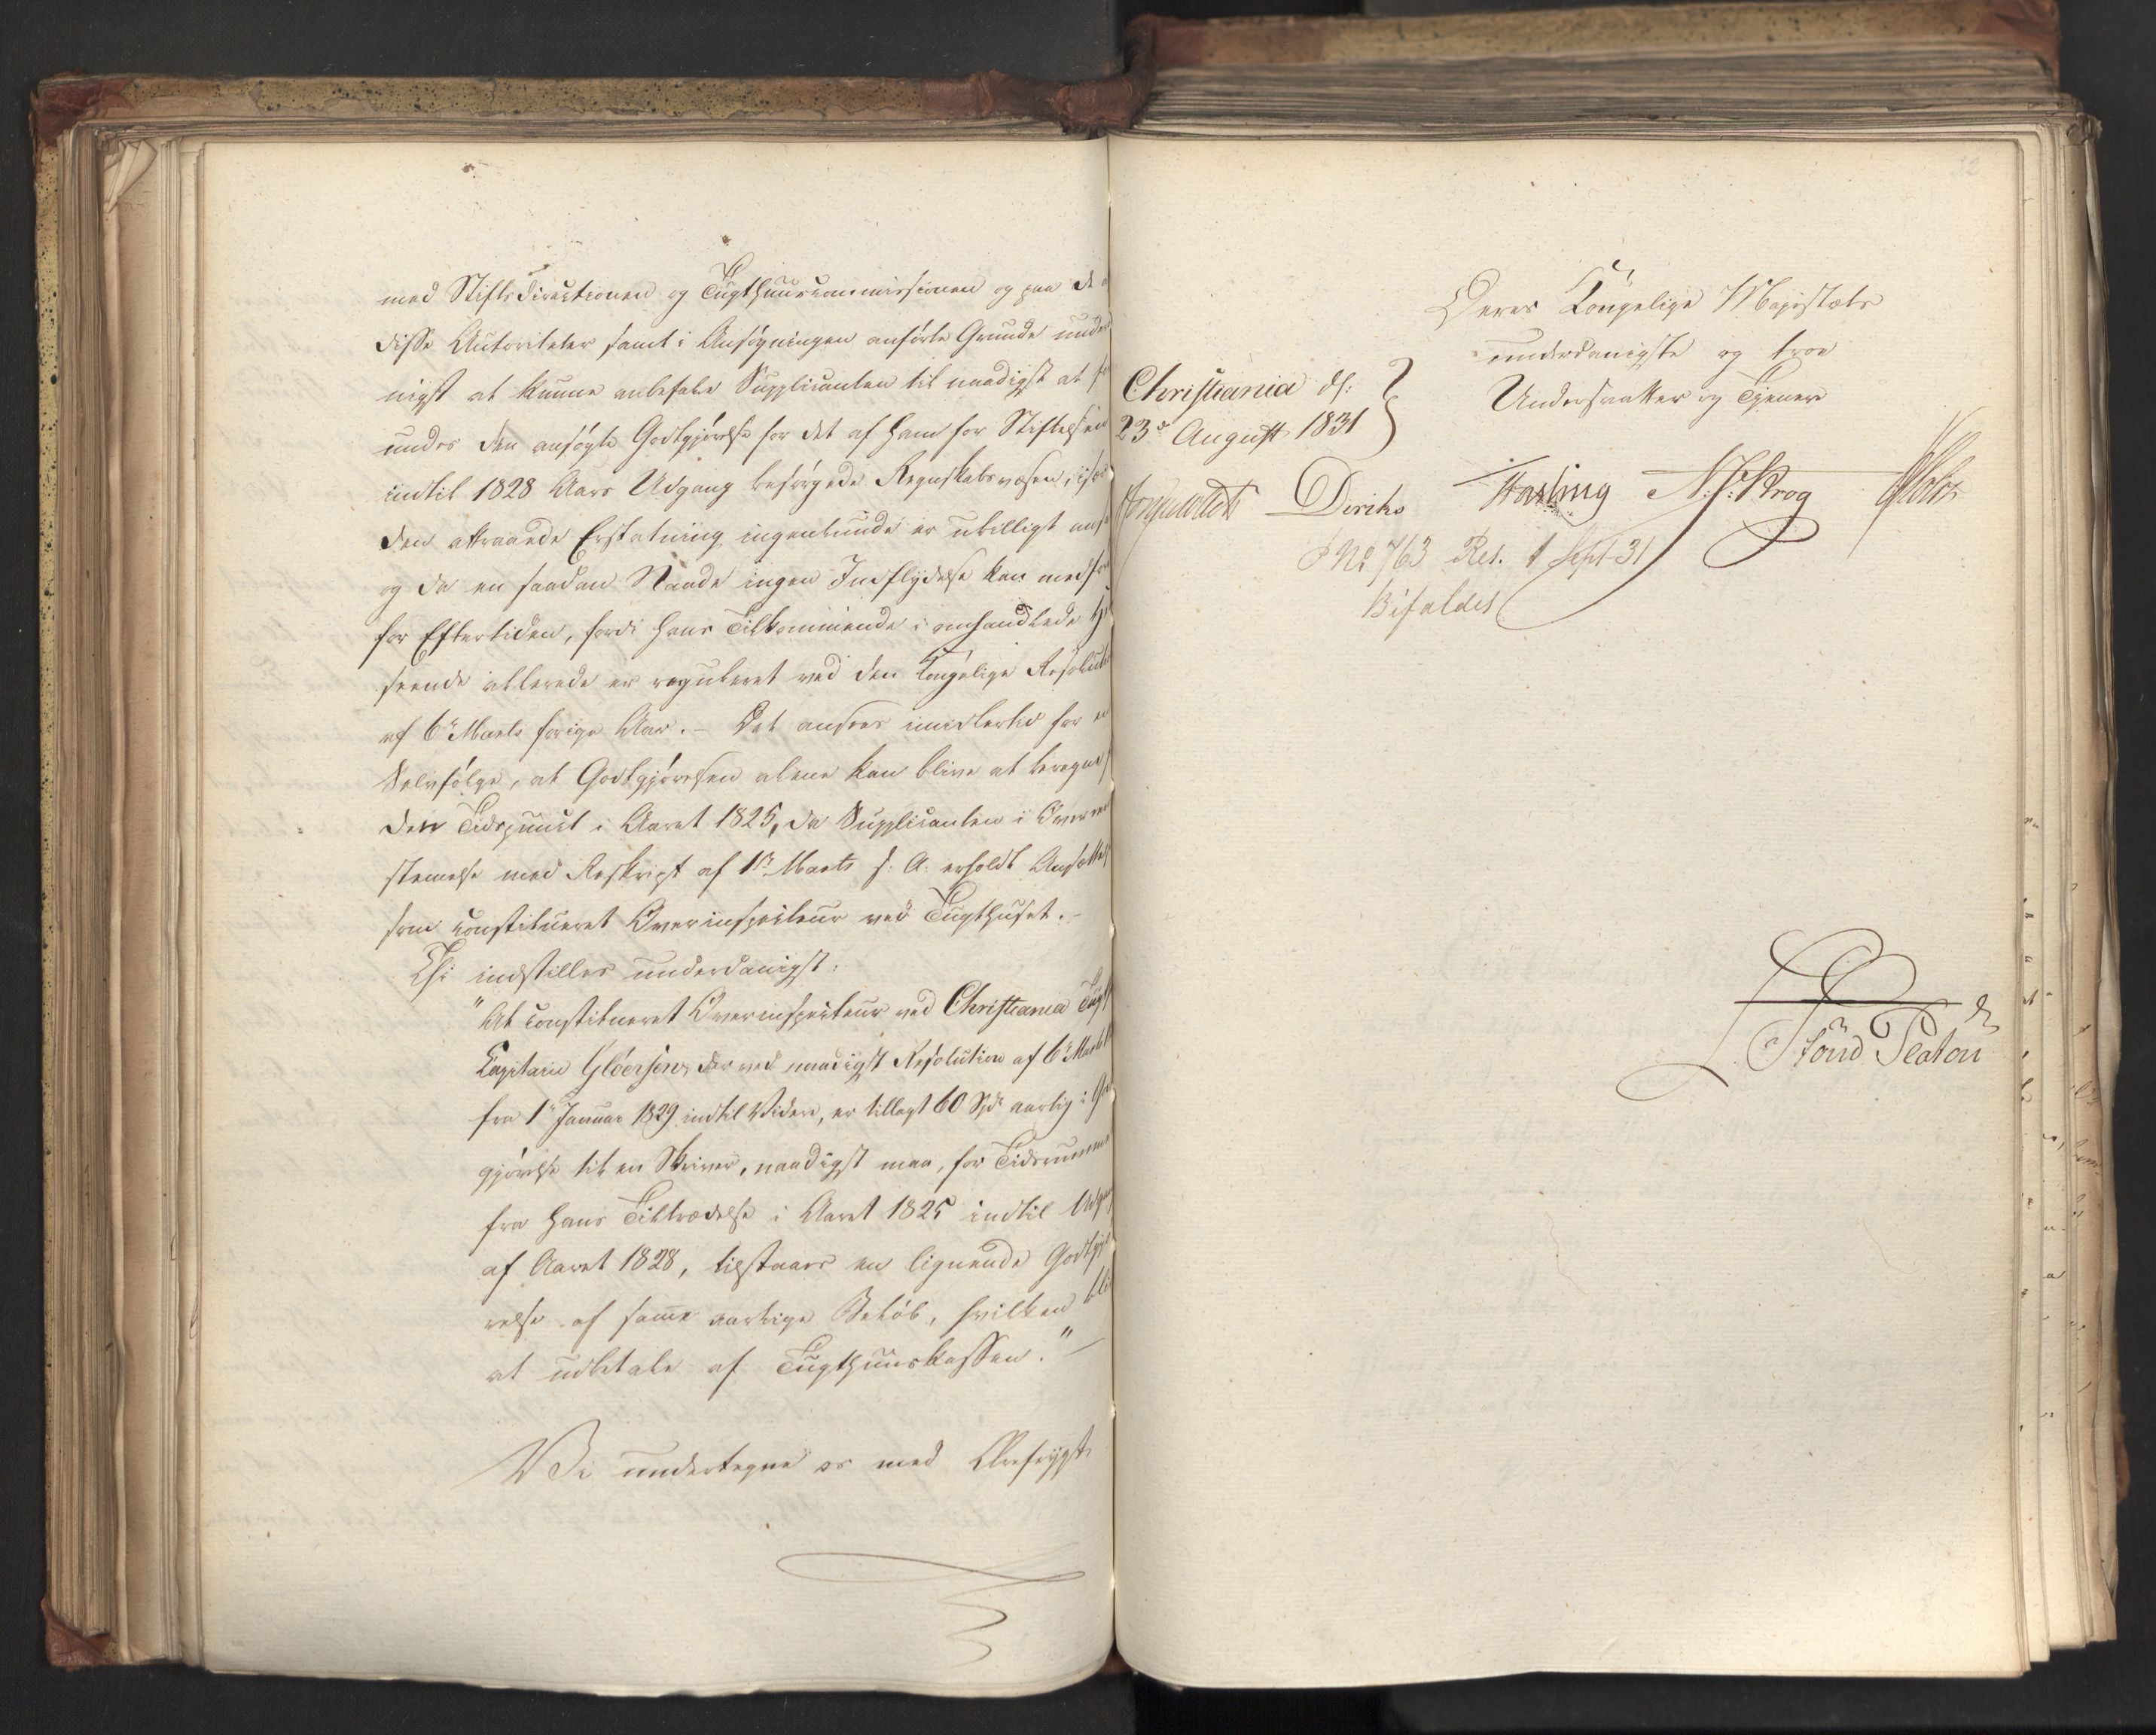 med Stiftsdirectionen og Tugthuuscommissionen og paa de
disse Autoriteter samt i Ansøgningen anførte Grunde under
nigst at kunne anbefale Supplicanten til naadigst at
undes den ansøgte Godtgjørelse for det af ham for Stiftelsen
indtil 1828 Aars Udgang besørgede Regnskabsvæsen,
den attraaede Erstatning ingenlunde er ubilligt
og da en saadan Naade ingen Indflydelse kan medføre
for Eftertiden, fordi hans Tilkommende i omhandlede
seende allerede er reguleret ved den Kongelige Resolut
af 6te Marts forige Aar. – Det ansees imidlertid for en
Selvfølge, at Godtgjørelsen alene kan blive at beregne
den Tidspunct i Aaret 1825, da Supplicanten i Overeens
stemmelse med Reskript af 1ste Marts s: A: erholdt Ansættelse
som constitueret Overinspecteur ved Tugthuset. –
Thi indstilles underdanigst:
"At constitueret Overinspecteur ved Christiania Tugt
Capitain Gløersen, der ved naadigst Resolution af 6te Marts
fra 1ste Januar 1829 indtil Videre, er tillagt 60 Spd aarlig i God
gjørelse til en Skriver, naadigst maa, for Tidsrummet
fra hans Tiltrædelse i Aaret 1825 indtil Udgang
af Aaret 1828, tilstaaes en lignende Godtgjø
relse af samme aarlige Beløb, hvilken bli
at udbetale af Tugthuuskassen." –
Vi undertegne os med Ærefrygt
Deres Kongelige Majestæts
underdanigste og troe
Undersaatter og Tjenere
Christiania d:
23de August 1831
Diriks Fasting N. J. Krog
No 763 Res. 1 Sept 31
Bifaldes